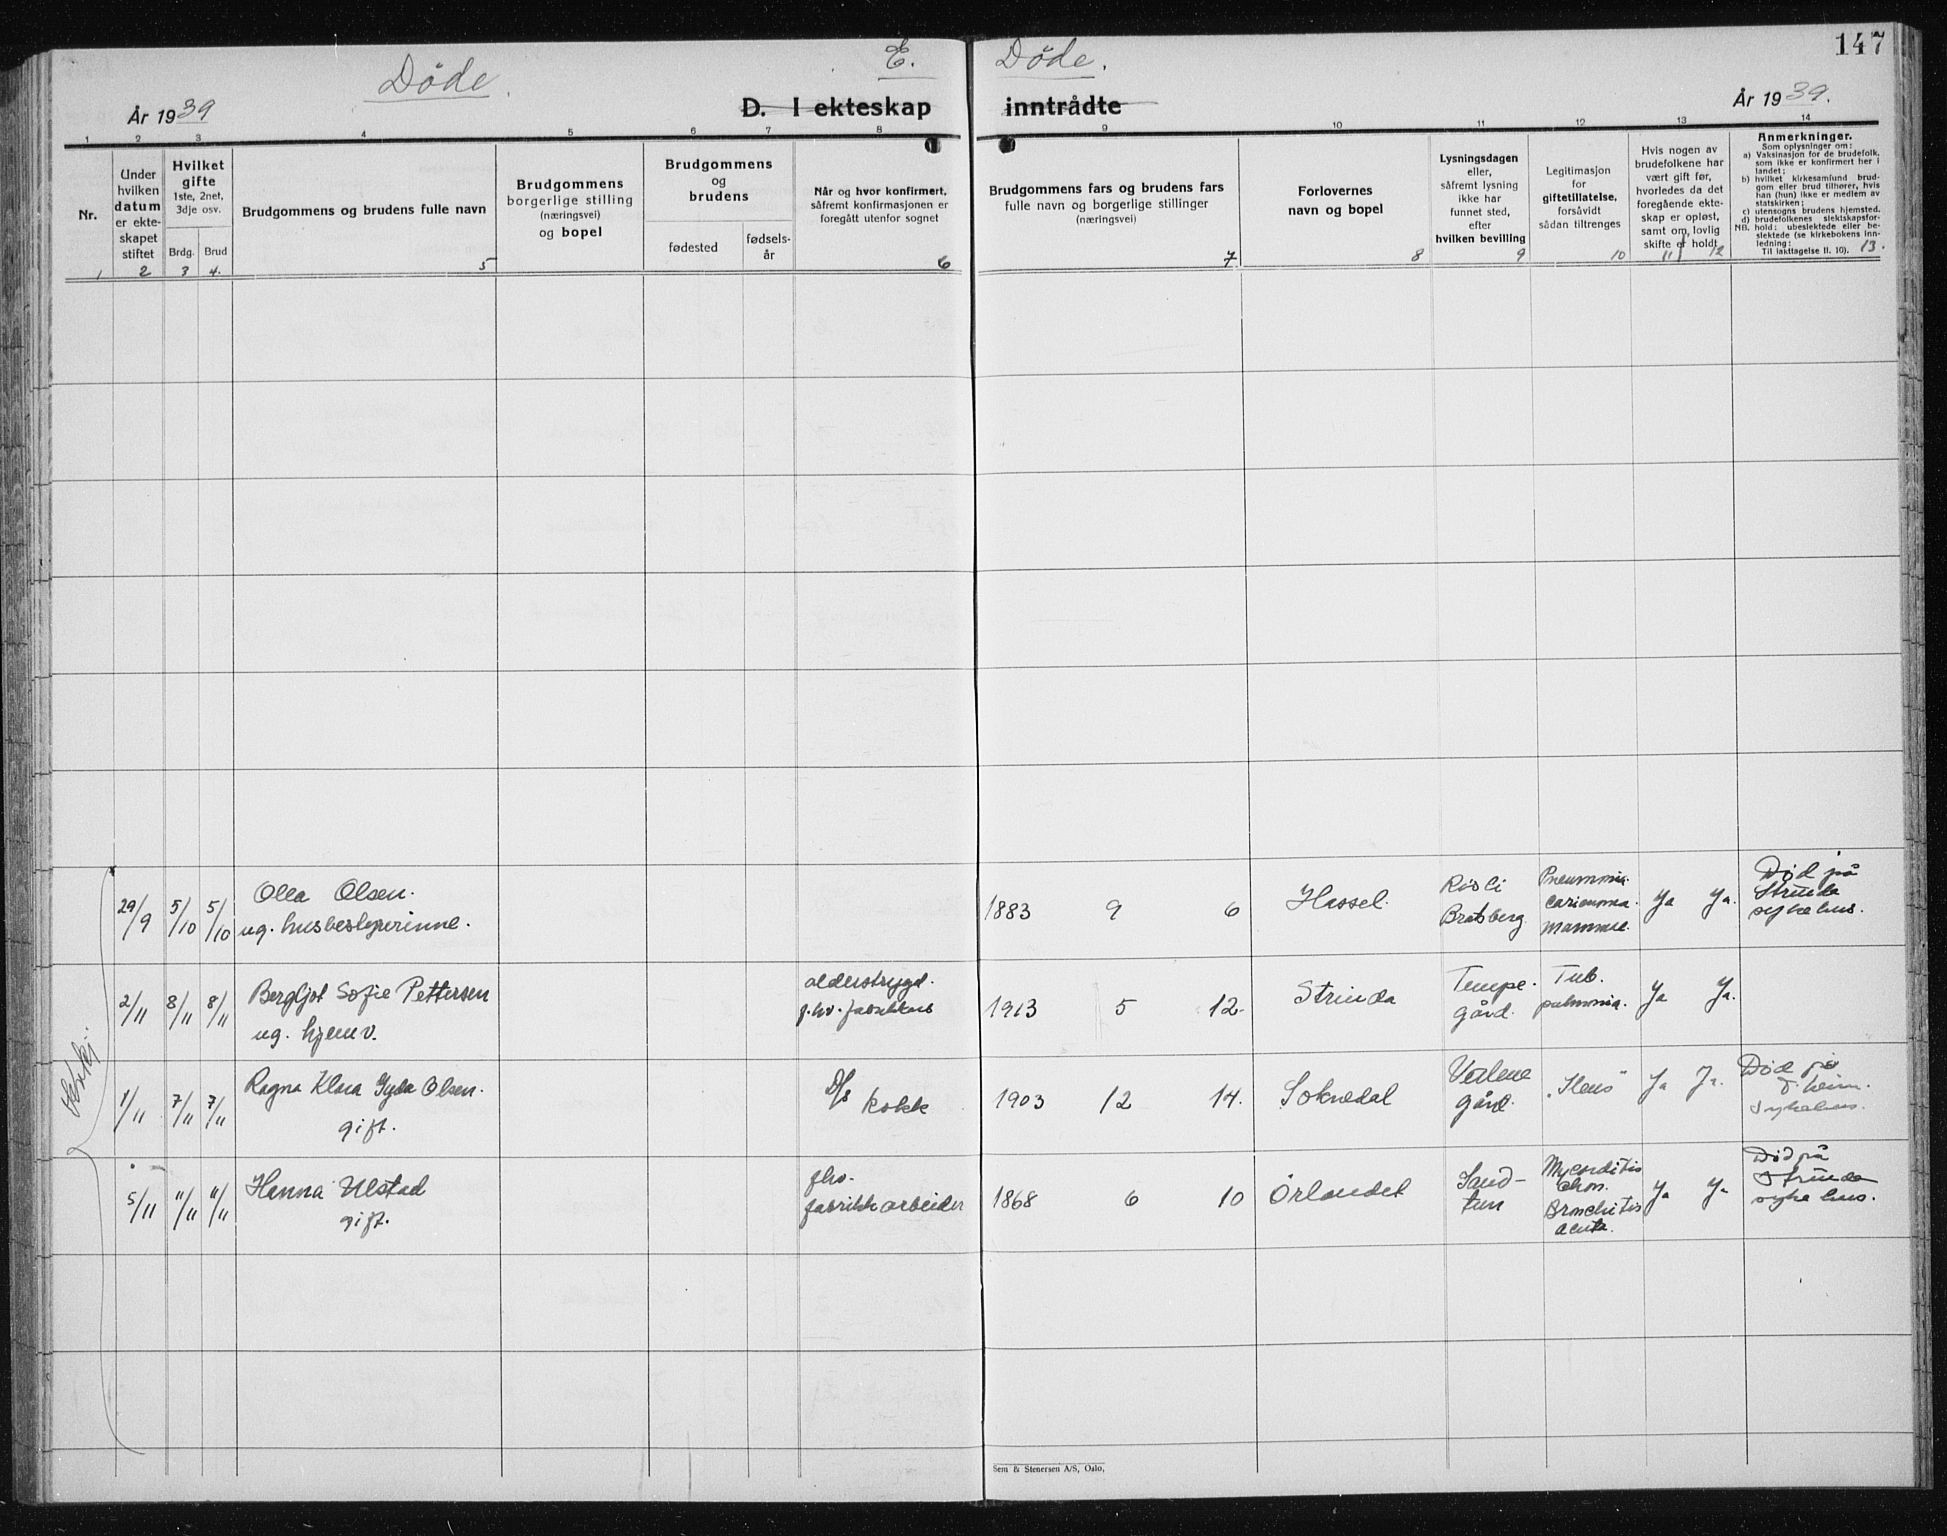 147
Døde. E. Døde.
År 1939 D. I ekteskap inntrådte År 1939.
1 2 3 4 5 6 7 8 9 10 11 12 13 14
Nr.
Under
hvilken
datum
er ekte-
skapet
stiftet
Hvilket
gifte
1ste, 2net,
3dje osv.
Brdg. Brud
Brudgommens og brudens fulle navn
Brudgommens
borgerlige stilling
(næringsvei)
og bopel
Brudgommens
og
brudens
fødested
fødsels-
år
Når og hvor konfirmert,
såfremt konfirmasjonen er
foregått utenfor sognet
Brudgommens fars og brudens fars
fulle navn og borgerlige stillinger
(næringsvei)
Forlovernes
navn og bopel
Lysningsdagen
eller,
såfremt lysning
ikke har
funnet sted,
efter
hvilken bevilling
Legitimasjon
for
giftetillatelse,
forsåvidt
sådan tiltrenges
Hvis nogen av
brudefolkene har
vært gift før,
hvorledes da det
foregående ekte-
skap er opløst,
samt om lovlig
skifte er holdt
Anmerkninger.
Som oplysninger om:
a) Vaksinasjon for de brudefolk,
som ikke er konfirmert her i
landet;
b) hvilket kirkesamfund brud-
gom eller brud tilhører, hvis
han (hun) ikke er medlem av
statskirken;
c) utensogns brudens hjemsted.
d) brudefolkenes slektskapsfor-
NB. hold: ubeslektede eller be-
slektede (se kirkebokens inn-
ledning:
Til iakttagelse II. 10).
1 2 3 4. 5 6 7 8 9 10 11 12 13.
29/9 5/10 5/10 Olla Olsen.
ug. husbestyrerinne.
1883 9 6 Hassel.
Bratsberg
Pneumonia.
mammae.
Ja Ja.
Død på
Strinda
sykehus.
2/11 8/11 8/11 Bergljot Sofie Pettersen
ug. hjemv.
alderstrygd.
1913 5 12. Strinda
Tempe.
gård.
Tub.
pulmonia.
Ja Ja.
1/11 7/11 7/11 Ragna Klara Gyda Olsen.
gift.
D/s
kokk
1903 12 14. Soknedal
gård.
"Ileus"
Ja Ja.
Død på
T.heim.
sykehus.
5/11 11/11 11/11 Hanna Ulstad
gift.
fhv.
fabrikkarbeider
1868 6 10 Ørlandet
Sand-
tun
chron.
Bronchitis
acuta.
Ja Ja
Død på
Strinda
sykehus.
Sem & Stenersen A/S, Oslo.